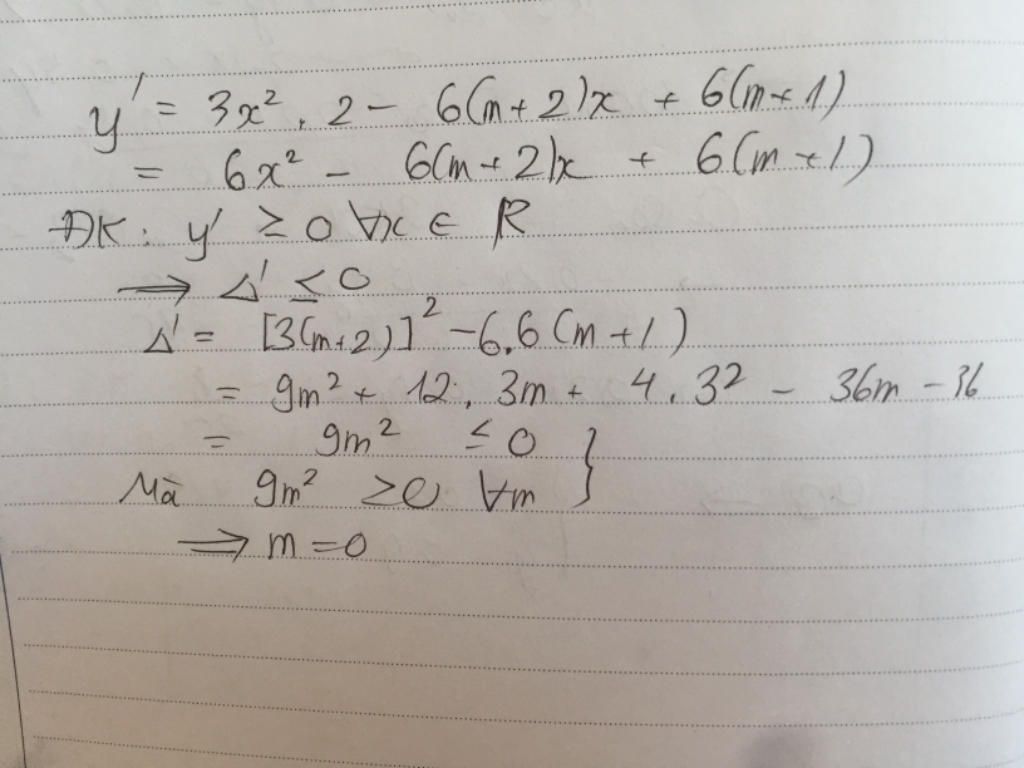 y' = 3x². 2 - 6(m+2)x + 6(m+1)
= 6x² - 6(m+2)x + 6(m+1)
ĐK: y' ≥ 0 ∀x ∈ R
⟹ Δ' ≤ 0
Δ' = [3(m+2)]² - 6.6(m+1)
= 9m² + 12. 3m + 4. 3² - 36m - 36
= 9m² ≤ 0 }
Mà 9m² ≥ 0 ∀m
⟹ m = 0